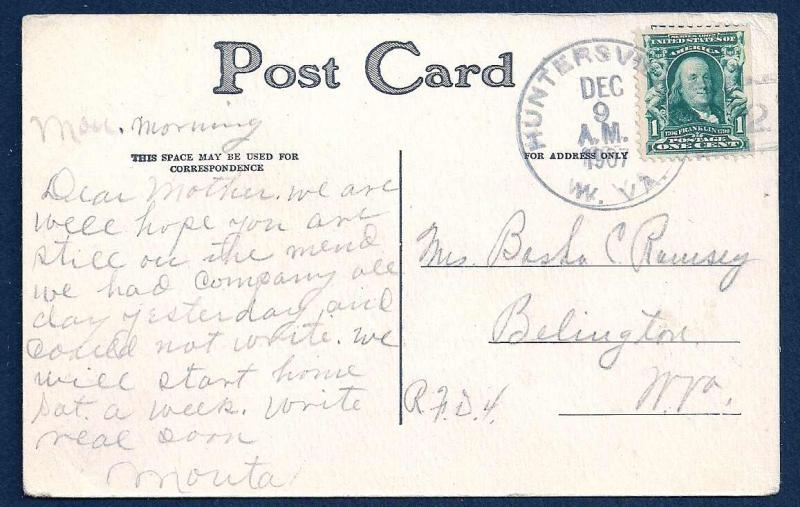 Post Card
HUNTERSV
DEC
9
A.M.
1907
W. VA.
SERIES 1902
UNITED STATES OF
AMERICA
1 FRANKLIN 1
POSTAGE
ONE CENT
2
Mon. morning
THIS SPACE MAY BE USED FOR
CORRESPONDENCE
FOR ADDRESS ONLY
Dear Mother. we are
well hope you are
still on the mend
we had company all
day yesterday, and
could not write. we
will start home
Sat. a week. Write
real soon
Monta
Mrs. C Ramsey
Belington,
Wva.
R.F.D.4.